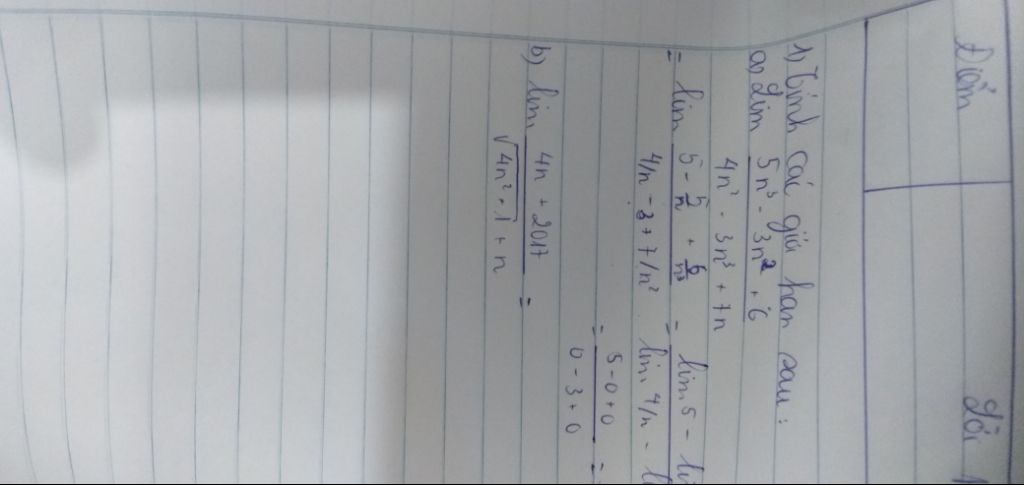 Điểm
Lời
1) Tính các giới hạn sau:
a) lim (5n³ - 3n² + 6)/(4n² - 3n³ + 7n)
= lim (5 - 5/n + 6/n³)/(4/n - 3 + 7/n²) = (lim 5 - li)/(lim 4/n - l
= (5 - 0 + 0)/(0 - 3 + 0) =
b) lim (4n + 2017)/(√(4n² + 1) + n) =